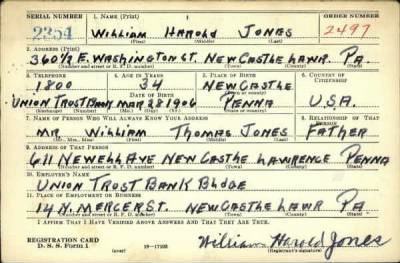 SERIAL NUMBER 1. NAME (Print) ORDER NUMBER
2354 William Harold Jones 2497
(First) (Middle) (Last)
2. ADDRESS (Print)
360½ E. Washington St. New Castle Lawr. Pa.
(Number and street or R. F. D. number) (Town) (County) (State)
3. TELEPHONE 4. AGE IN YEARS 5. PLACE OF BIRTH 6. COUNTRY OF CITIZENSHIP
1800 34 New Castle
DATE OF BIRTH
Union Trust Bank Mar 28 1906 Penna U.S.A.
(Exchange) (Number) (Mo.) (Day) (Yr.) (State or country)
7. NAME OF PERSON WHO WILL ALWAYS KNOW YOUR ADDRESS 8. RELATIONSHIP OF THAT PERSON
Mr William Thomas Jones Father
(Mr., Mrs., Miss) (First) (Middle) (Last)
9. ADDRESS OF THAT PERSON
611 Newell Ave New Castle Lawrence Penna
(Number and street or R. F. D. number) (Town) (County) (State)
10. EMPLOYER'S NAME
Union Trust Bank Bldge
11. PLACE OF EMPLOYMENT OR BUSINESS
14 N. Mercer St. New Castle Lawr Pa
(Number and street or R. F. D. number) (Town) (County) (State)
I AFFIRM THAT I HAVE VERIFIED ABOVE ANSWERS AND THAT THEY ARE TRUE.
REGISTRATION CARD
D. S. S. Form 1 (over) 16—17105 William Harold Jones
(Registrant's signature)